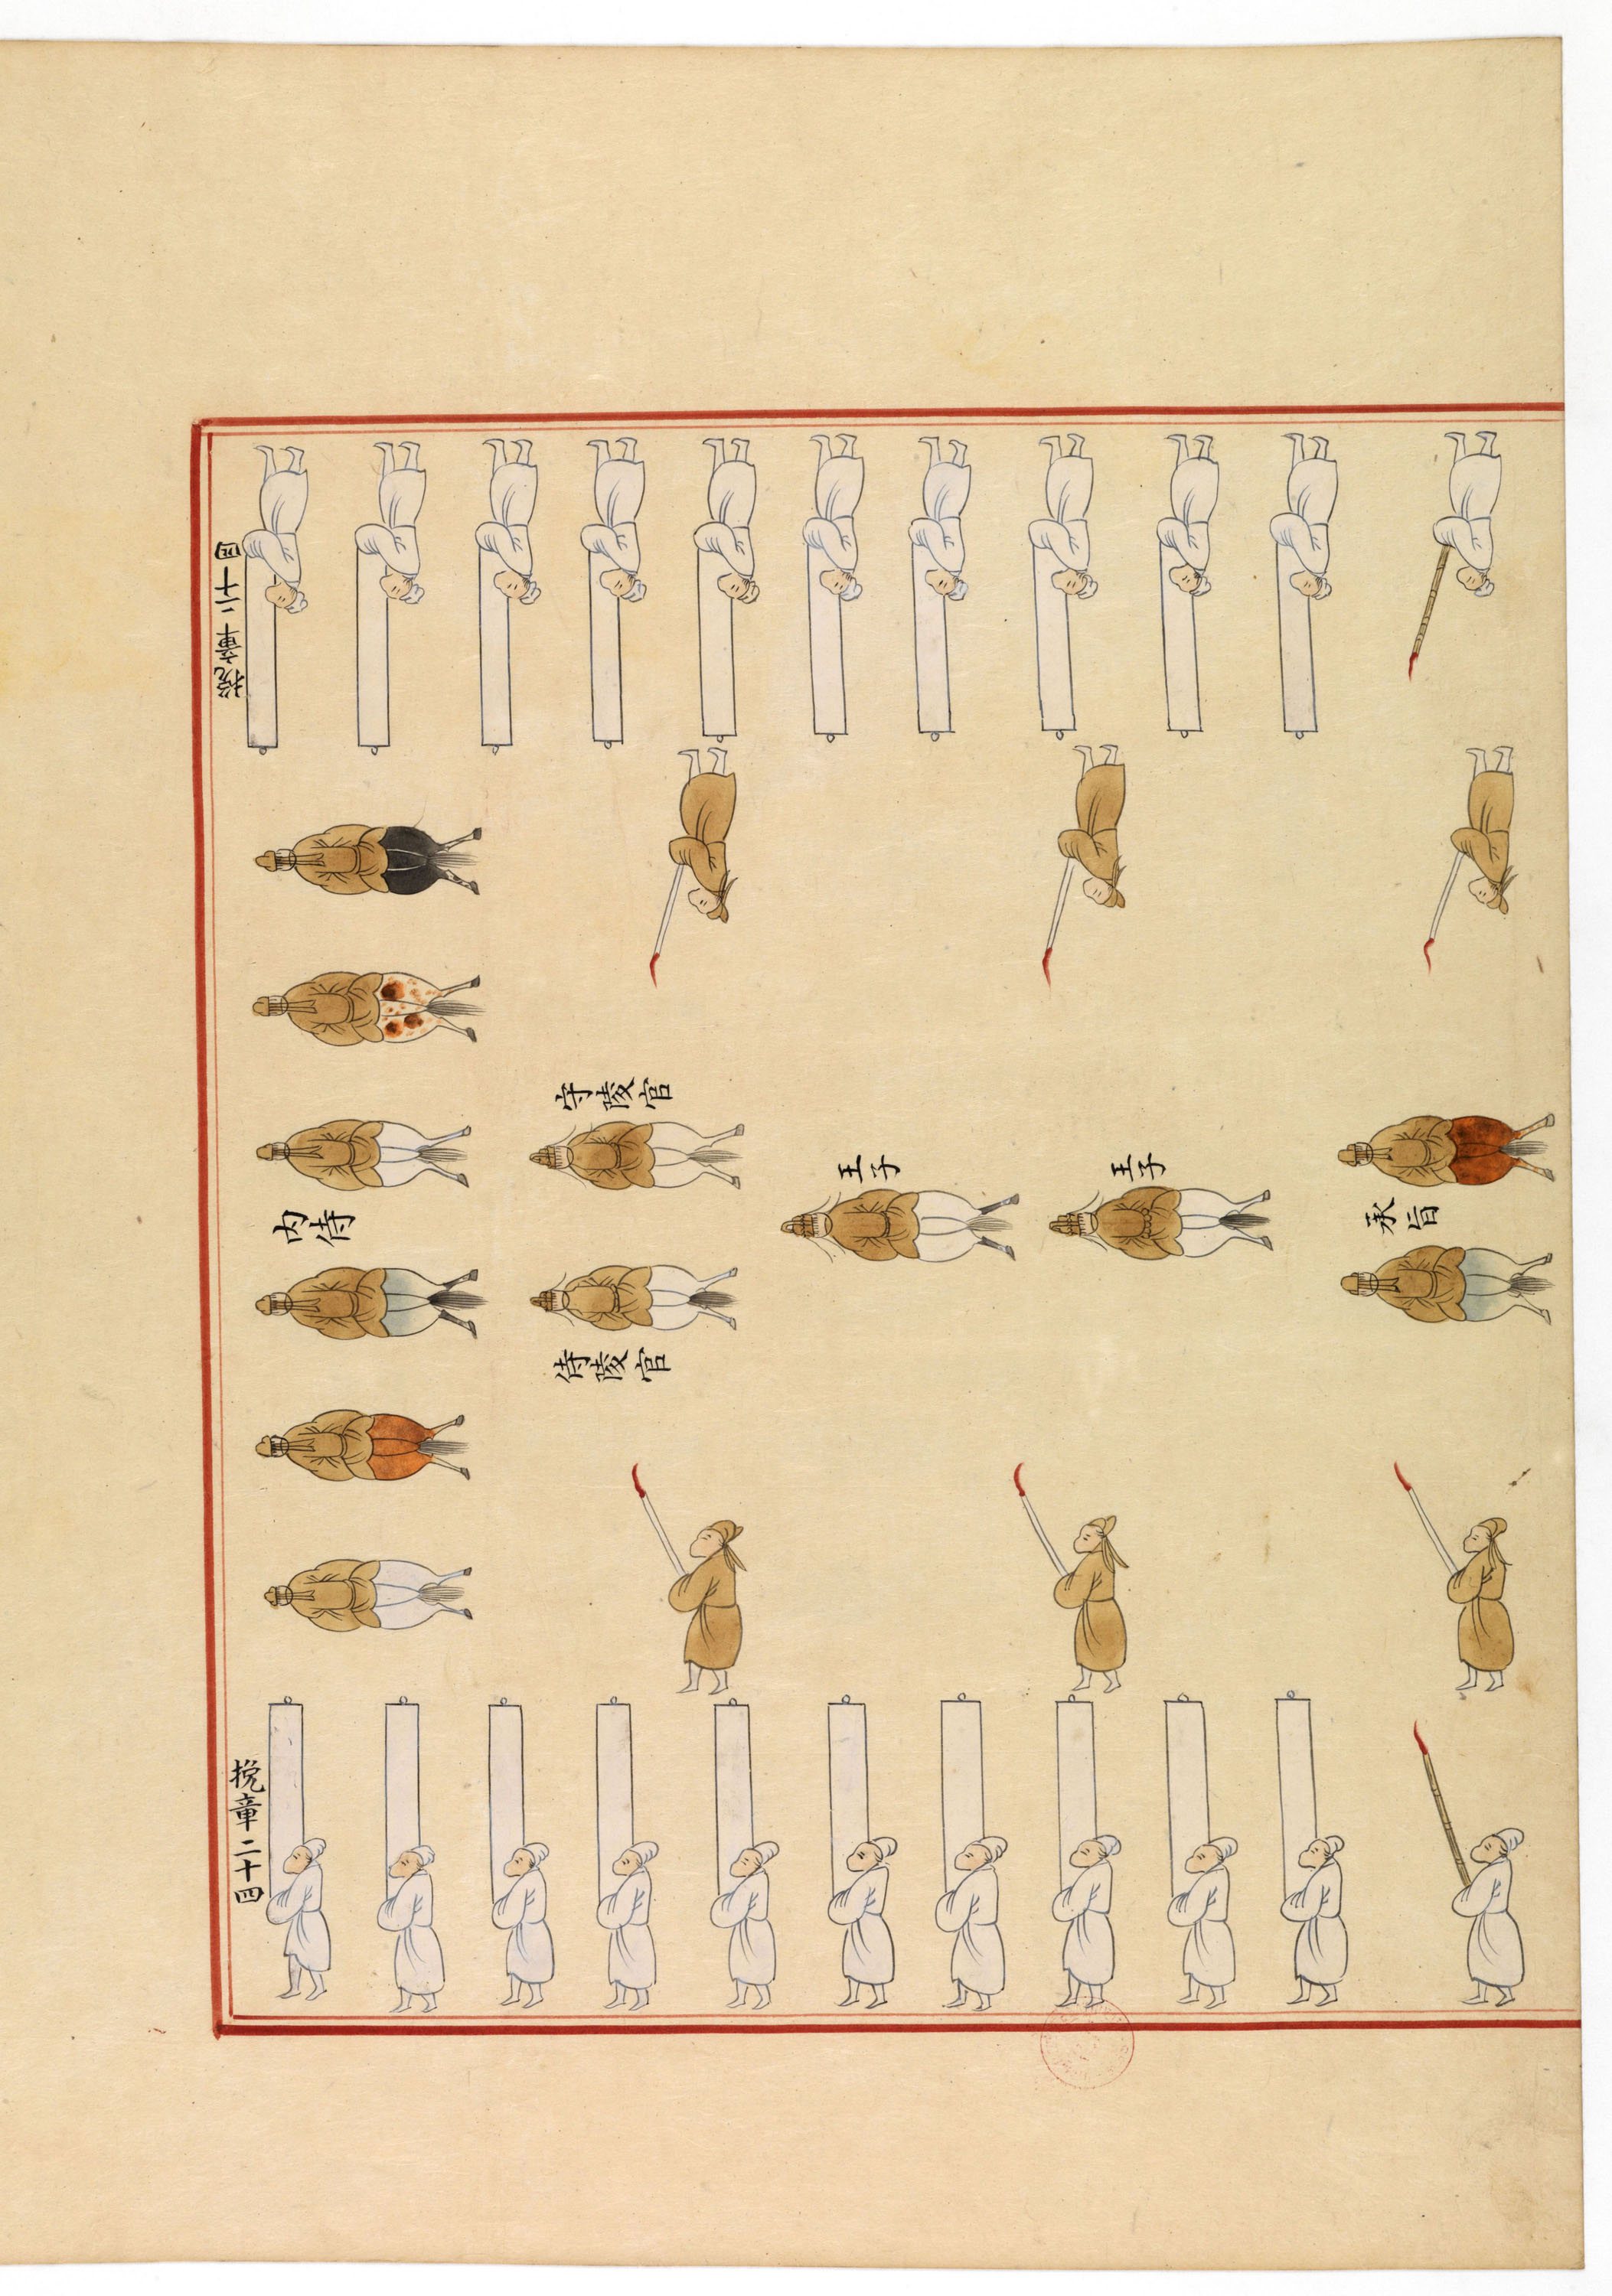 挽章二十四
内侍
守陵官
侍陵官
王子
王子
承旨
挽章二十四